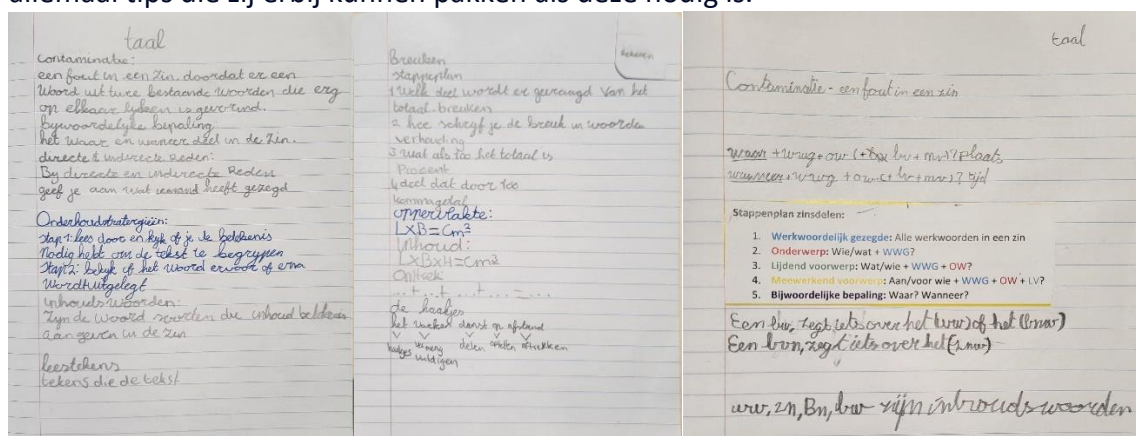 allemaal tips die zij erbij kunnen pakken als deze nodig is.
taal
contaminatie:
een fout in een zin, doordat er een
Woord uit twee bestaande woorden die erg
op elkaar lijken is gevormd.
bijwoordelijke bepaling
het waar en wanneer deel in de zin.
directe & indirecte Reden:
By directe en indirecte Reden
geef je aan wat iemand heeft gezegd
Stap 1: lees door en kijk of je de betekenis
Nodig hebt om de tekst te begrijpen
Stap 2: bekijk of het woord ervoor of erna
Wordt uitgelegd
inhoudswoorden:
Zijn de woord soorten die inhoud betekenis
aangeven in de zin
leestekens
tekens die de tekst
rekenen
Breuken
stappenplan
1 Welk deel wordt er gevraagd van het
totaal. breuken
2 hoe schrijf je de breuk in woorden
verhouding
3 wat als 100 het totaal is
Procent
4 deel dat door 100
kommagetal
oppervlakte:
LxB=Cm²
inhoud:
LxBxH=Cm³
Omtrek:
...+...+...+...=...
de haakjes
het rekken danst op afstand
haakjes vermenigvuldigen delen optellen aftrekken
taal
Contaminatie - een fout in een zin
waar + wwg + ow (+ lv + mv)? plaats
wanneer + wwg + ow (+ lv + mv)? tijd
Stappenplan zinsdelen:
1. Werkwoordelijk gezegde: Alle werkwoorden in een zin
2. Onderwerp: Wie/wat + WWG?
3. Lijdend voorwerp: Wat/wie + WWG + OW?
4. Meewerkend voorwerp: Aan/voor wie + WWG + OW + LV?
5. Bijwoordelijke bepaling: Waar? Wanneer?
Een bw, zegt iets over het (ww) of het (bnw)
Een bvn, zegt iets over het (znw)
ww, zn, Bn, bw zijn inhoudswoorden